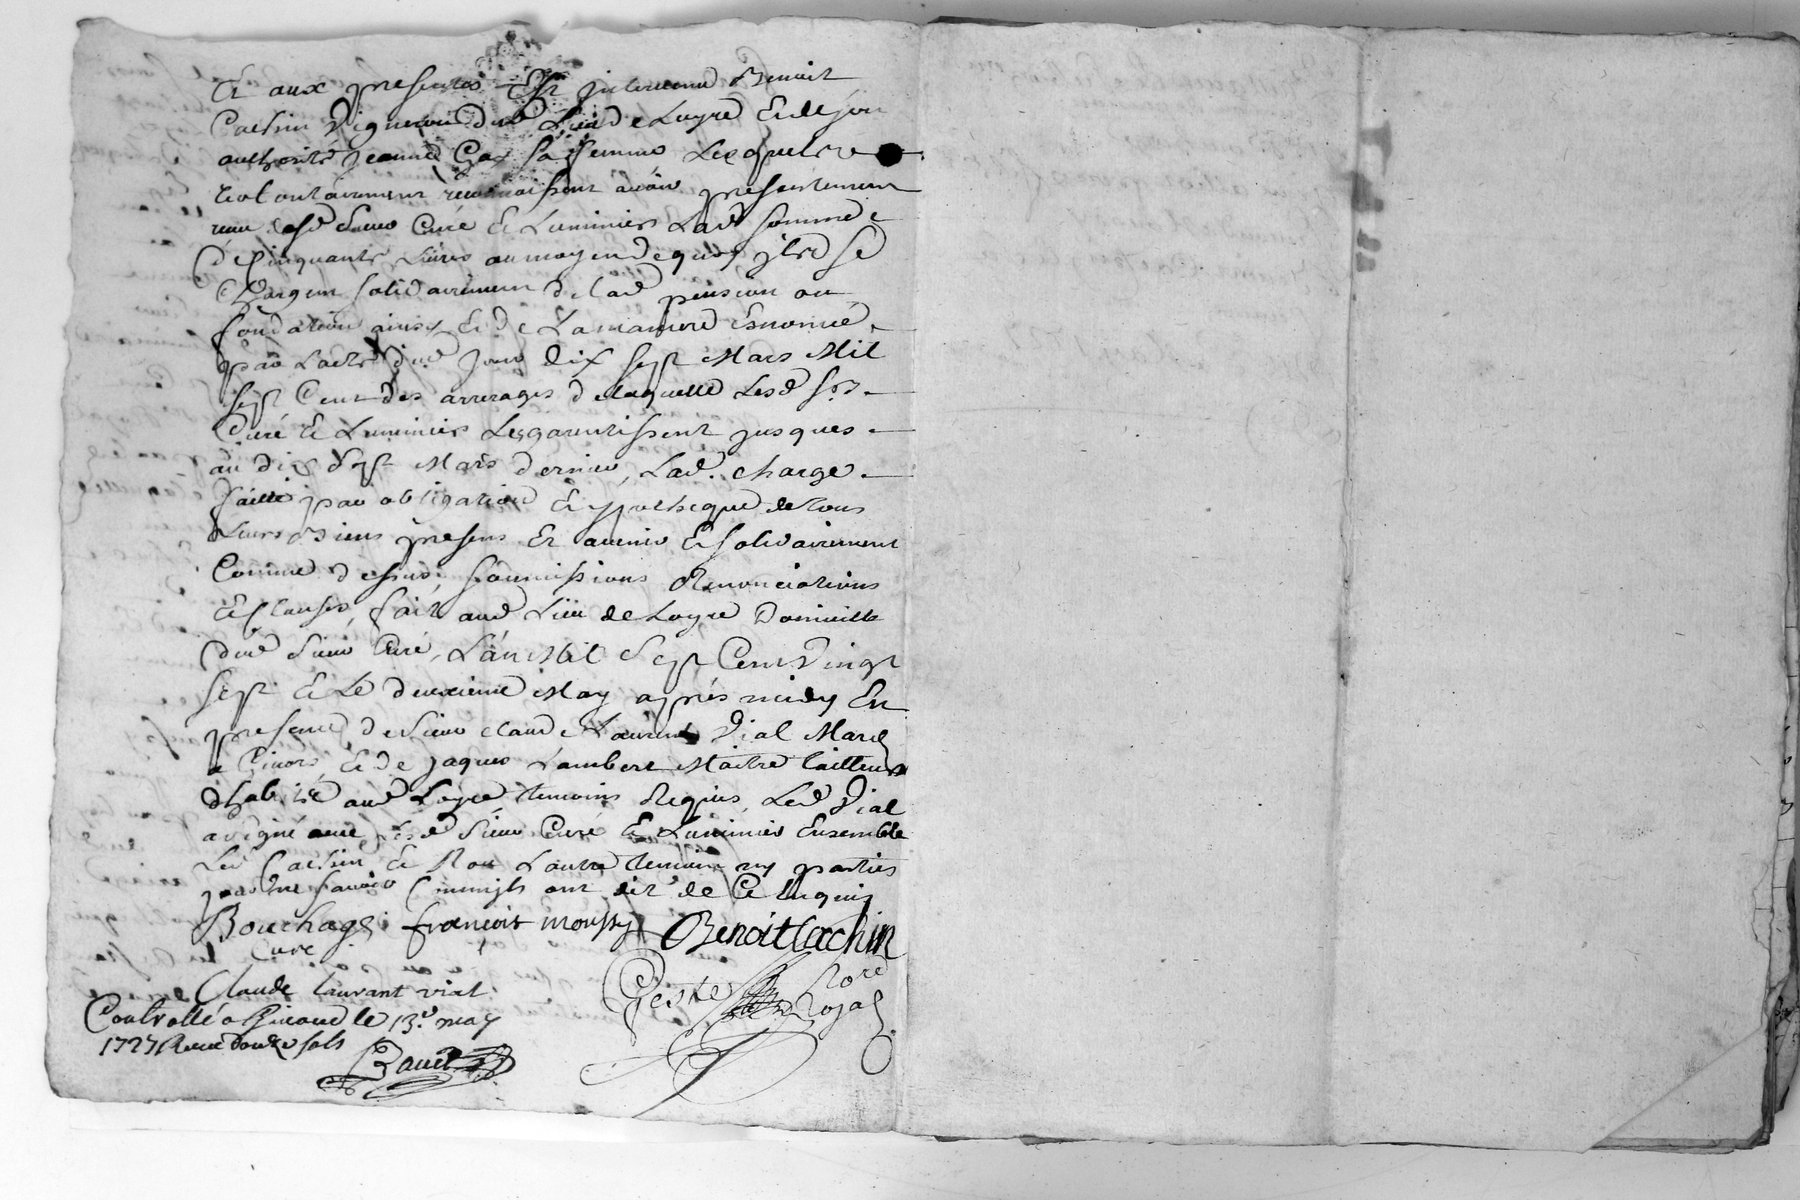 Et aux presentes Est jntervenu Benoit
Cachin Vigneron dud Lieu de Loyre Et de son
authorité jeanne Gay sa femme Lesquels de
volontairement reconoissent avoir presentement
receu desd Sieur Curé & Luminier Lad somme
de Cinquante Livres au moyen de quoy jls se
Chargent solidairement de lad pension ou
fondation ainsy Et de La maniere Enoncée
par Lacte dud jour dix sept Mars Mil
sept Cent des arrerages de laquelle Lesd srs
Curé & Luminier Les garentissent jusques
au dix sept Mars dernier, Lad. charge
faitte par obligation & ypotheque de tous
Leurs Biens presens Et avenir & solidairement
Comme dessus, soumissions Renonciations
& Clauses, fait aud Lieu de Loyre Domicille
dud Sieur Curé, L'an Mil Sept Cent Vingt
sept & Le deuxieme May après midy En
presence de Sieur Claude Laurent Vial Marcd
a Givors & de jaques Lambert Maitre tailleur
dhabits aud Loyre temoins Requis, Led Vial
a signé avec Lesd Sieur Curé & Luminier Ensemble
Led Cachin & Non Lautre temoin ny parties
pour ne savoir Comme ils ont dit de Ce Enquis
Bouchage françois moussy Benoit Cachin
Curé
Claude laurant vial
Geste Nore Royal
Controllé a Givord le 13e may
1727 Receu douze sols